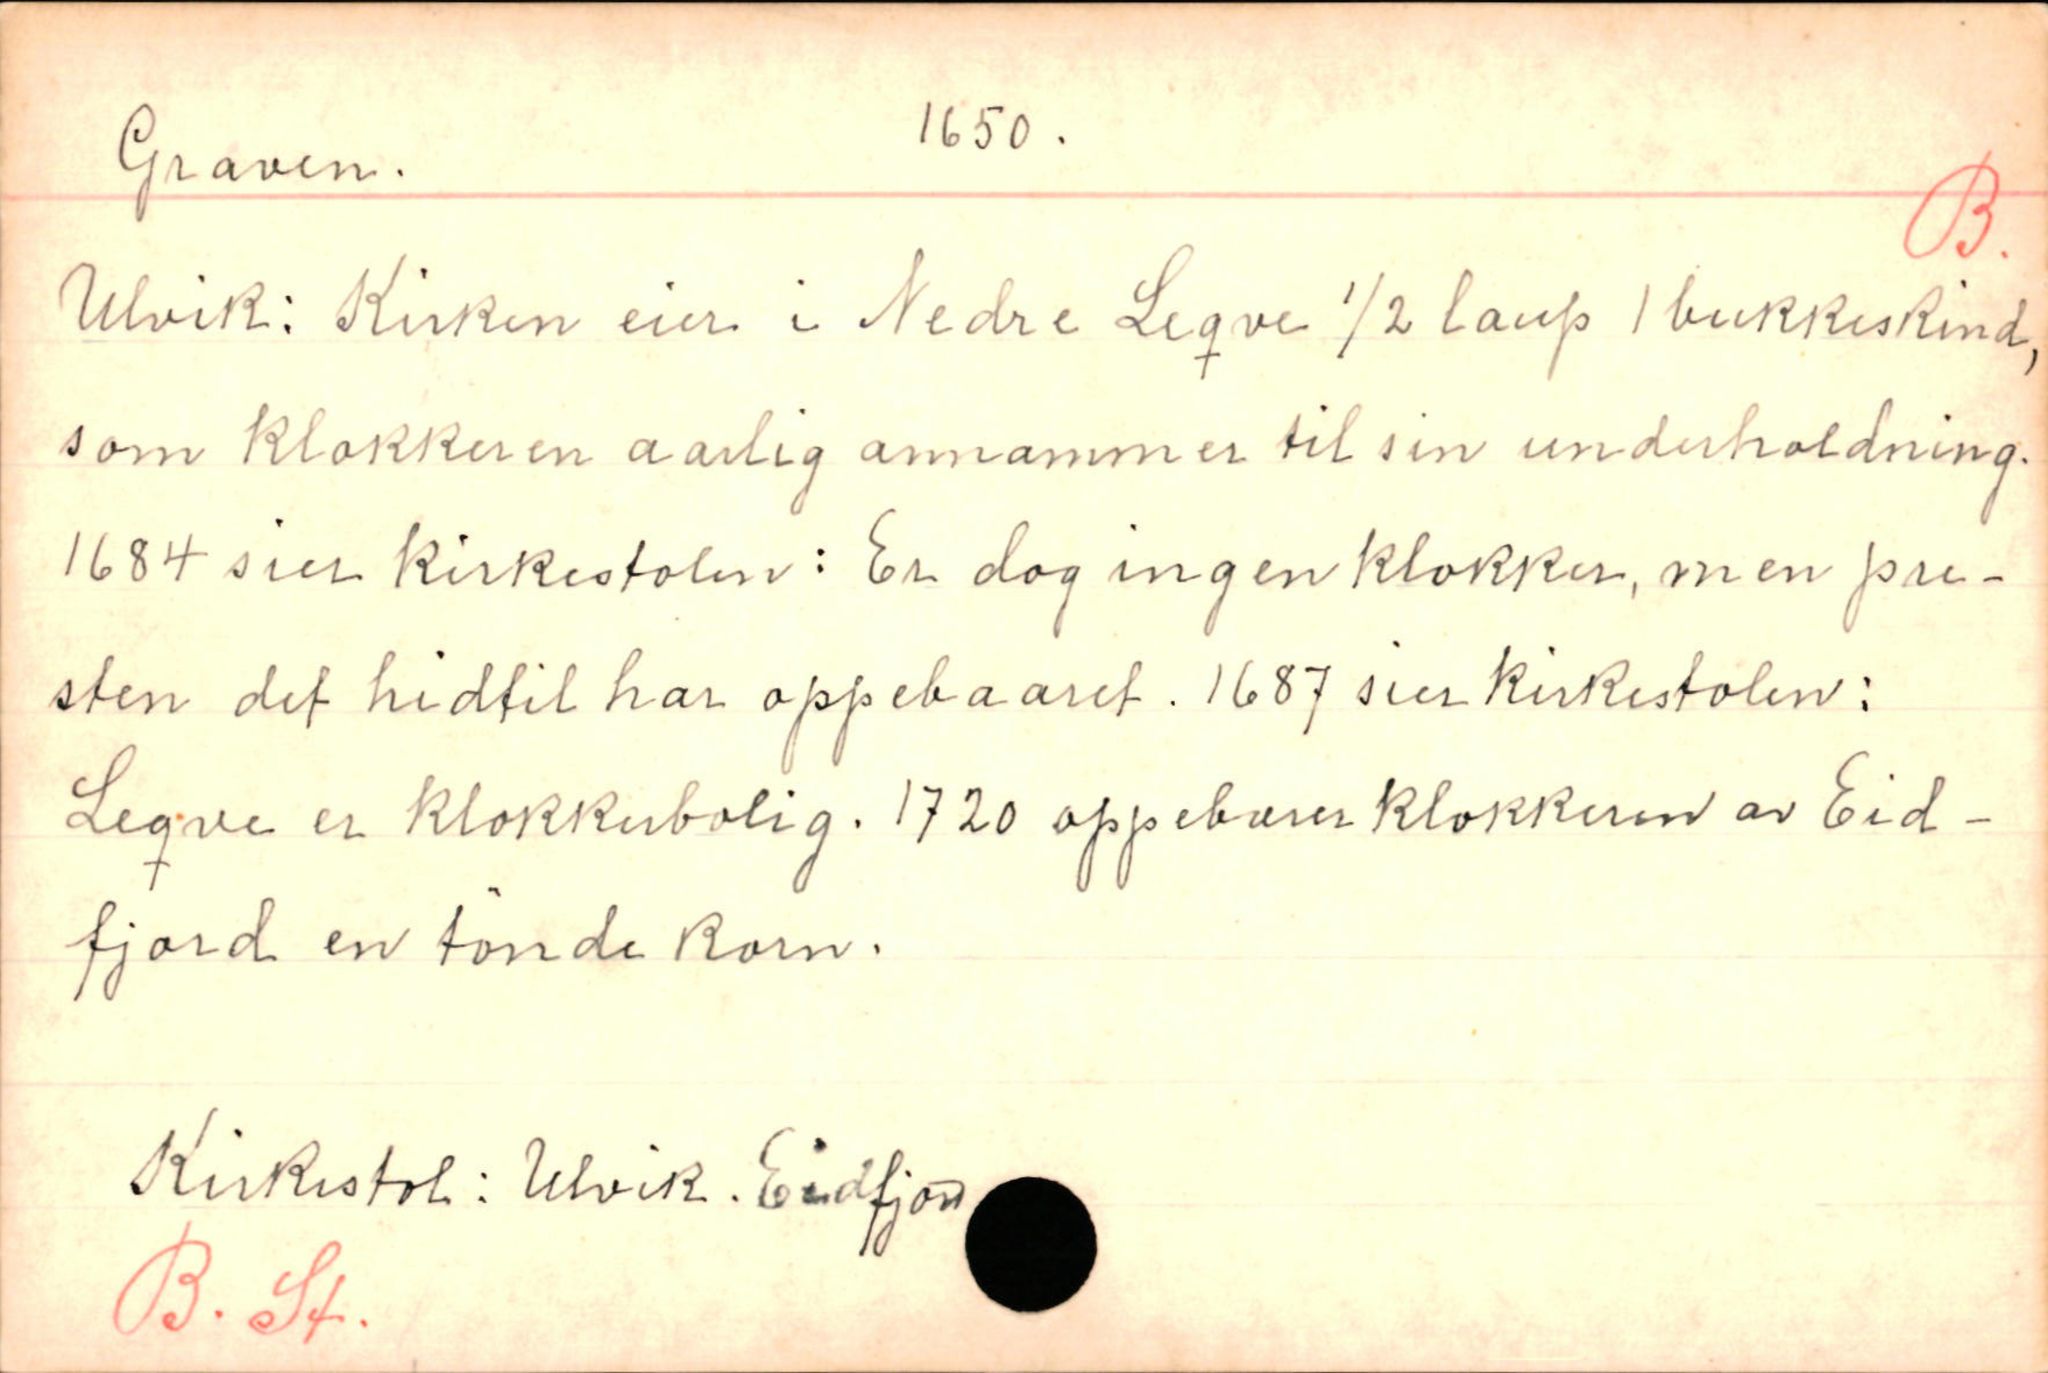 Graven. 1650.
B.
Ulvik: Kirken eier i Nedre Leqve 1/2 laup 1 bukkeskind,
som klokkeren aarlig annammer til sin underholdning.
1684 sier kirkestolen: Er dog ingen klokker, men pre-
sten det hidtil har oppebaaret. 1687 sier kirkestolen:
Leqve er klokkerbolig. 1720 oppebærer klokkeren av Eid-
fjord en tönde korn.
Kirkestol: Ulvik. Eidfjord
B. St.